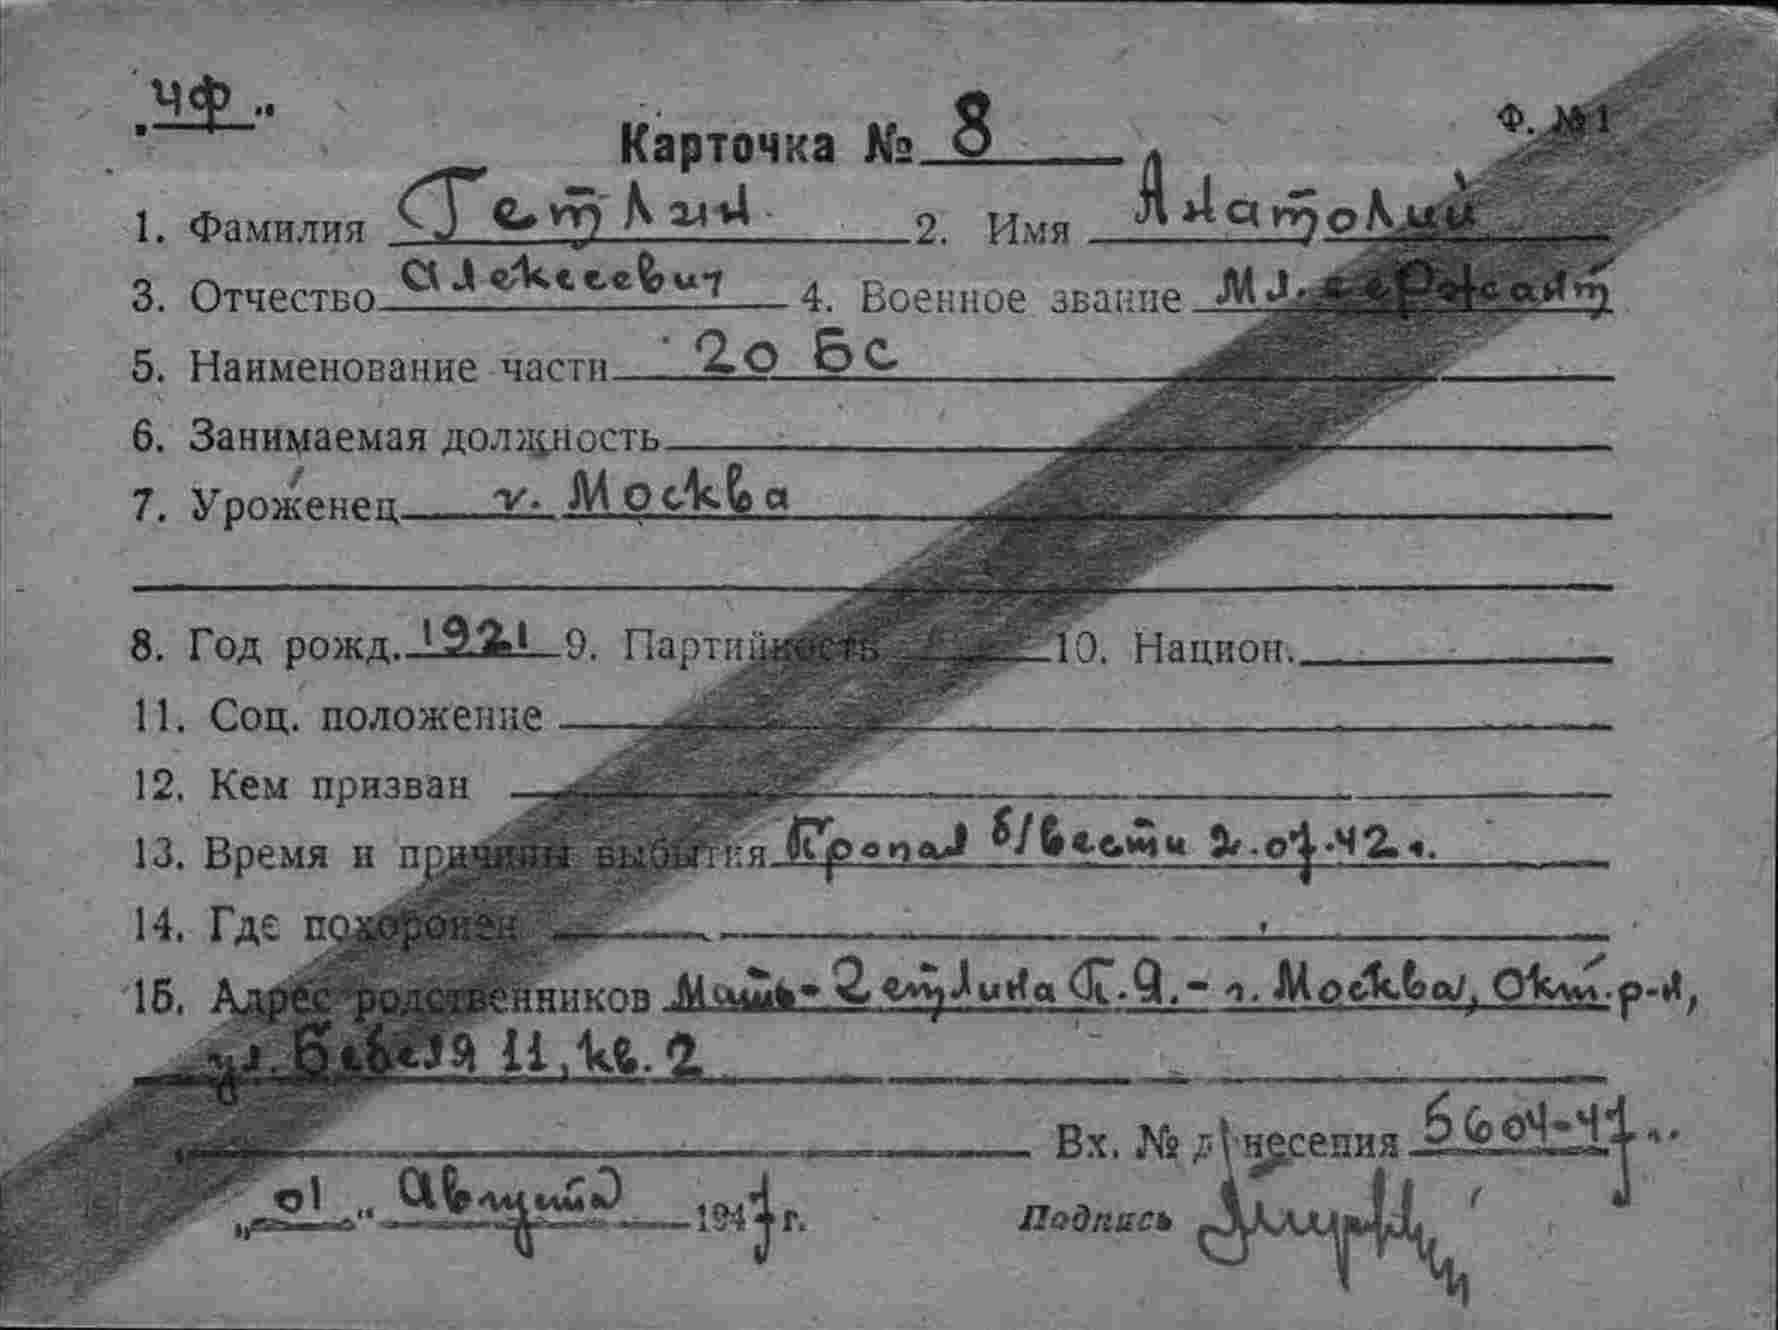 „ЧФ"
Карточка № 8
Ф. № 1
1. Фамилия Гетлин 2. Имя Анатолий
3. Отчество Алексеевич 4. Военное звание Мл. сержант
5. Наименование части 20 БС
6. Занимаемая должность
7. Уроженец г. Москва
8. Год рожд. 1921 9. Партийность 10. Национ.
11. Соц. положение
12. Кем призван
13. Время и причины выбытия Пропал б/вести 2.07.42 г.
14. Где похоронен
15. Адрес родственников Мать - Гетлина П.Я. - г. Москва, Окт. р-н,
ул. Бебеля 11, кв. 2
Вх. № донесения 5604-47 г.
„01" Августа 1947 г. Подпись